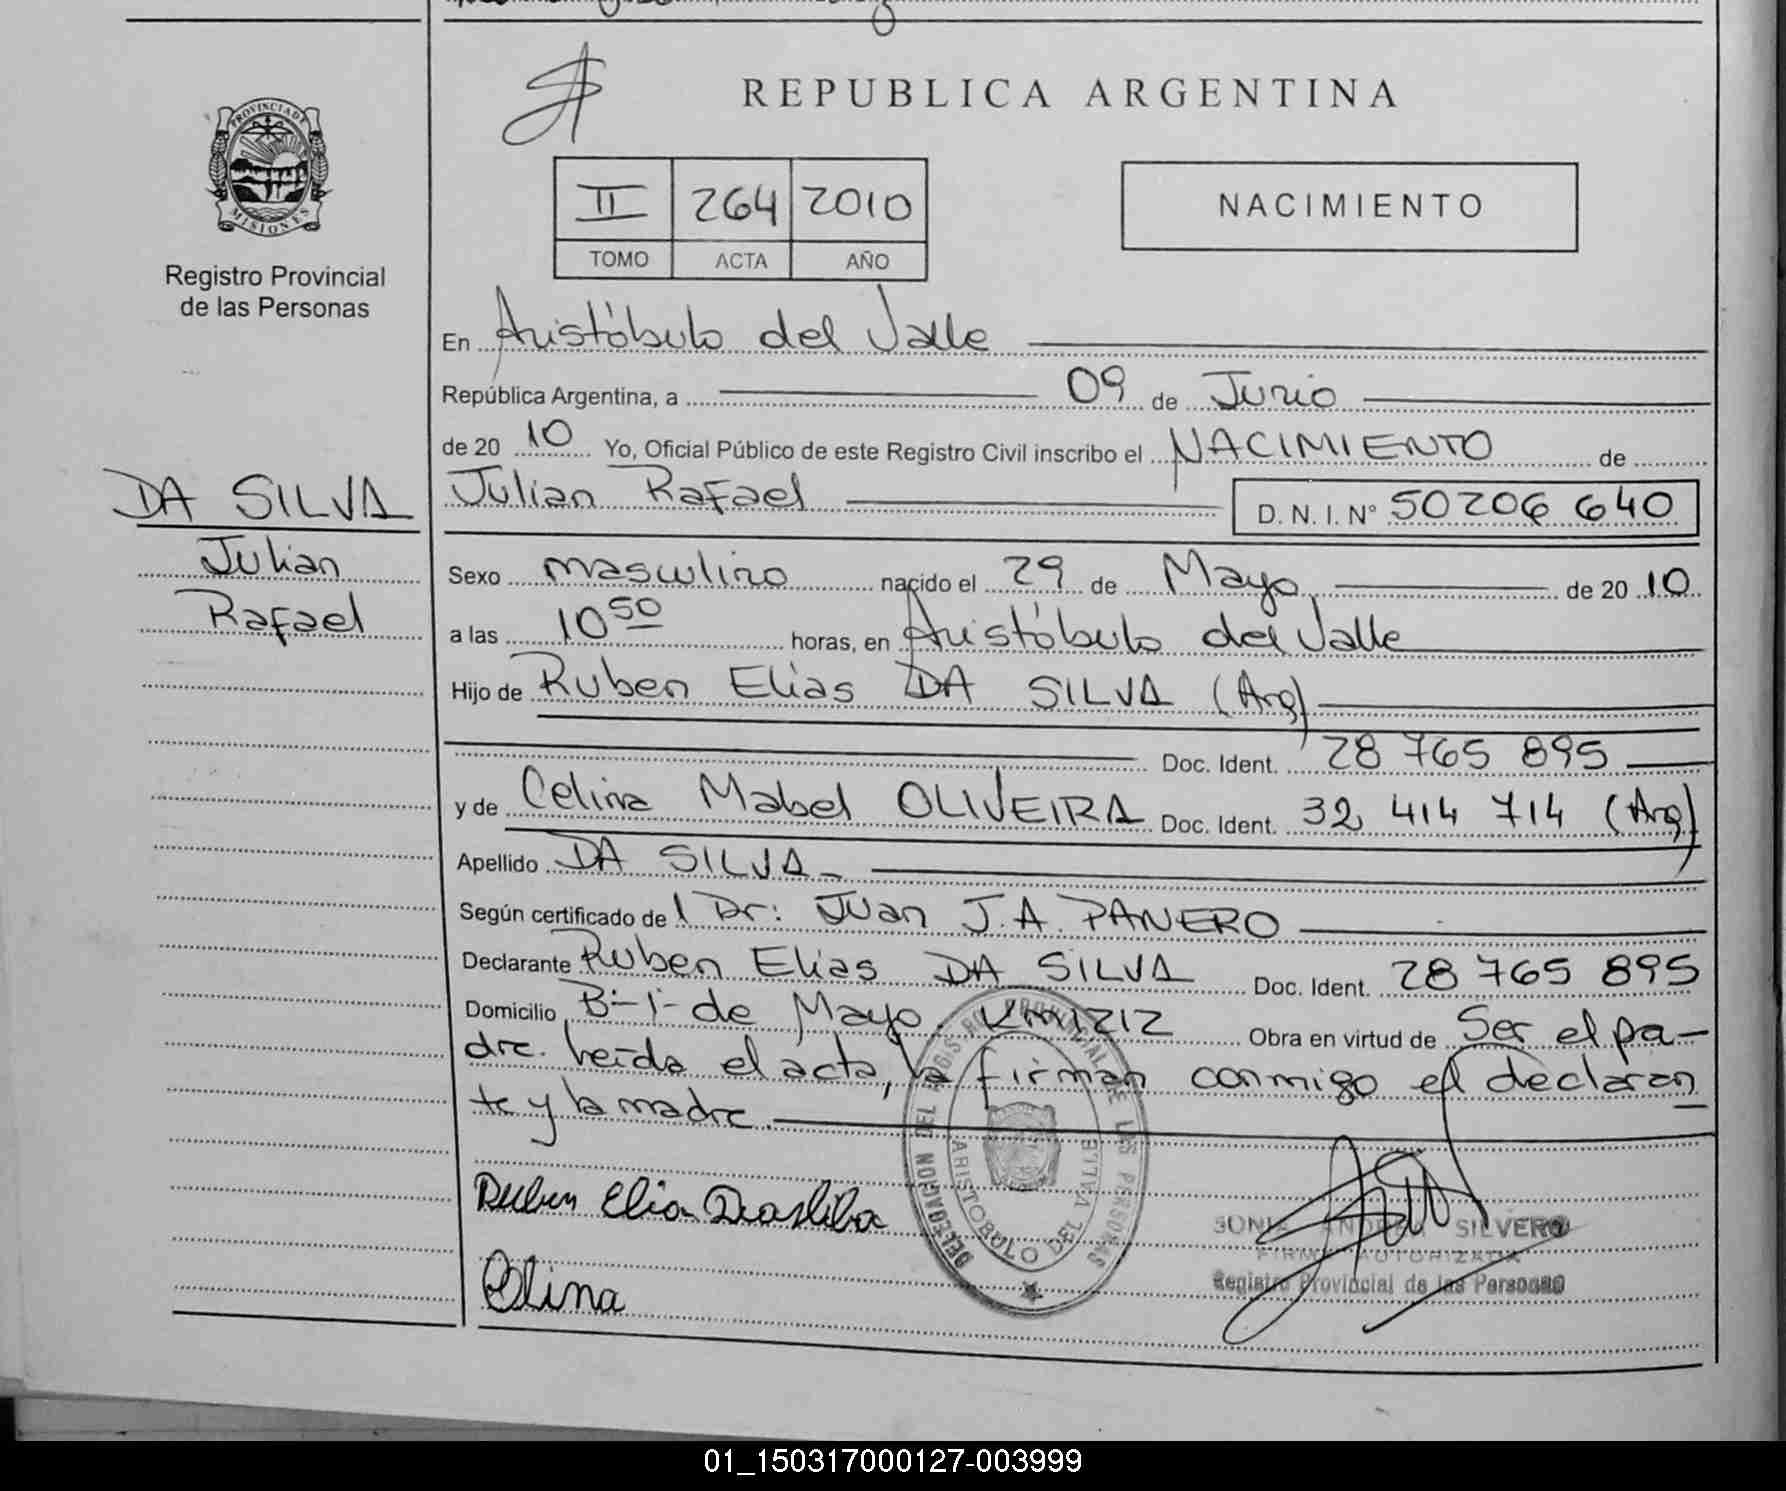 REPUBLICA ARGENTINA
PROVINCIA DE MISIONES
Registro Provincial
de las Personas
II 264 2010
TOMO ACTA AÑO
NACIMIENTO
En Aristóbulo del Valle
República Argentina, a 09 de Junio
de 20 10 Yo, Oficial Público de este Registro Civil inscribo el NACIMIENTO de
Julian Rafael D. N. I. N° 50206 640
DA SILVA
Julian
Rafael
Sexo masculino nacido el 29 de Mayo de 20 10
a las 10 50 horas, en Aristóbulo del Valle
Hijo de Ruben Elias DA SILVA (Arg)
Doc. Ident. 28 765 895
y de Celina Mabel OLIVEIRA Doc. Ident. 32 414 714 (Arg)
Apellido DA SILVA
Según certificado de Dr: Juan J.A. PANERO
Declarante Ruben Elias DA SILVA Doc. Ident. 28 765 895
Domicilio B-1-de Mayo. KM1212 Obra en virtud de Ser el pa-
dre. Leída el acta, la firman conmigo el declaran
te y la madre.
DELEGACION DEL REGISTRO PROVINCIAL DE LAS PERSONAS
ARISTOBULO DEL VALLE
Ruben Elia Dasilba
Celina
SONIA ANDREA SILVERO
FIRMA AUTORIZADA
Registro Provincial de las Personas
01_150317000127-003999